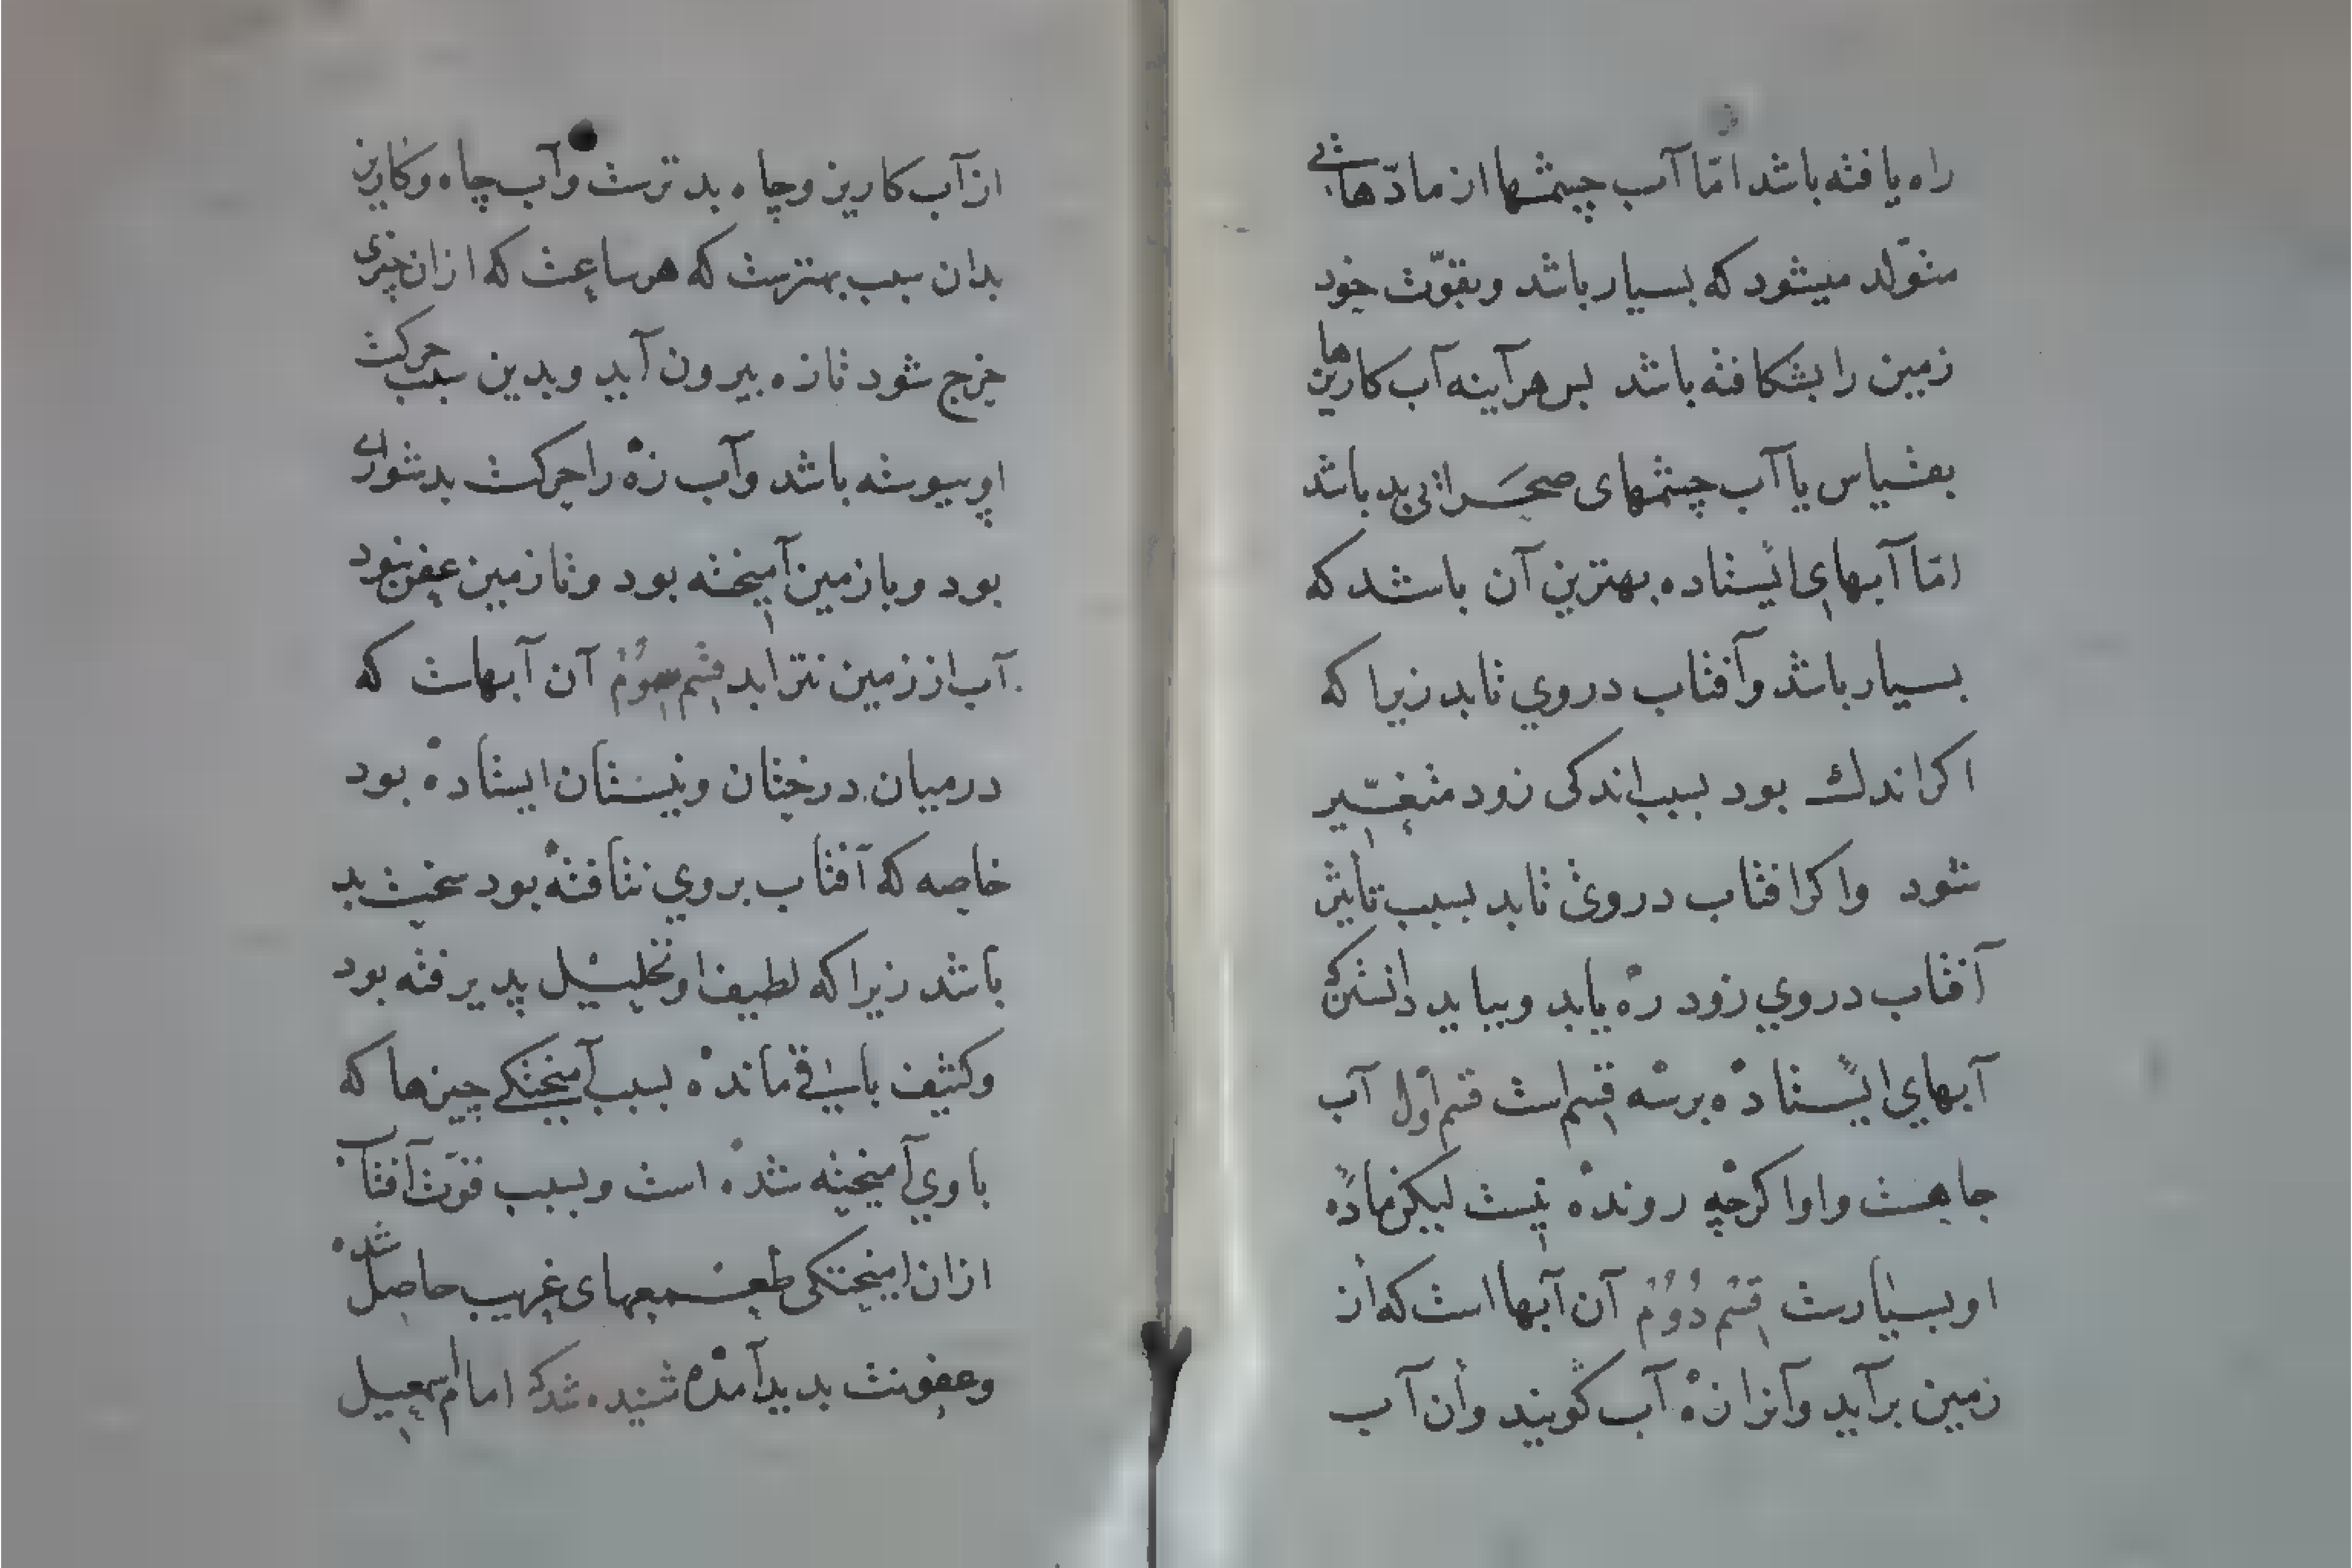 راه یافته باشد امّا آب چشمها از مادّهائی
متولّد میشود که بسیار باشد و بقوّت خود
زمین را بشکافته باشد بس هرآینه آب کاریزها
بقیاس یا آب چشمهای صحرائی بد باشد
امّا آبهای ایستاده بهترین آن باشد که
بسیار باشد وآفتاب در وی تابد زیرا که
اکر اندك بود بسبب اندکی زود متغیّر
شود واکر افتاب در وی تابد بسبب تأثیر
آفتاب در وی زود ره یابد وبباید دانستن که
آبهای ایستاده بر سه قسم است قسم اوّل آب
جاهست واو اکرچه رونده نیست لیکن مادّه
او بسیارست قسم دوّم آن آبها است که از
زمین برآید وآنرا زه آب کویند وآن آب
از آب کاریز وچاه بد ترست وآب چاه وکاریز
بدان سبب بهترست که هر ساعت که از ان چیزی
خرج شود تازه بیرون آید وبدین سبب حرکت
او پیوسته باشد وآب زه را حرکت بدشواری
بود وبا زمین آمیخته بود وتا زمین عفن نبود
آب از زمین نترابد قسم سوّم آن آبهاست که
در میان درختان ونیستان ایستاده بود
خاصه که آفتاب بر وی نتافته بود سخت بد
باشد زیرا که لطیف او تحلیل پدیرفته بود
وکثیف باقی مانده بسبب آمیختکی چیزها که
با وی آمیخته شده است وبسبب قوّت آفتاب
از ان امیختکی طعمهای غریب حاصل شده
وعفونت بدید آمده شنیده شد که امام اسمعیل